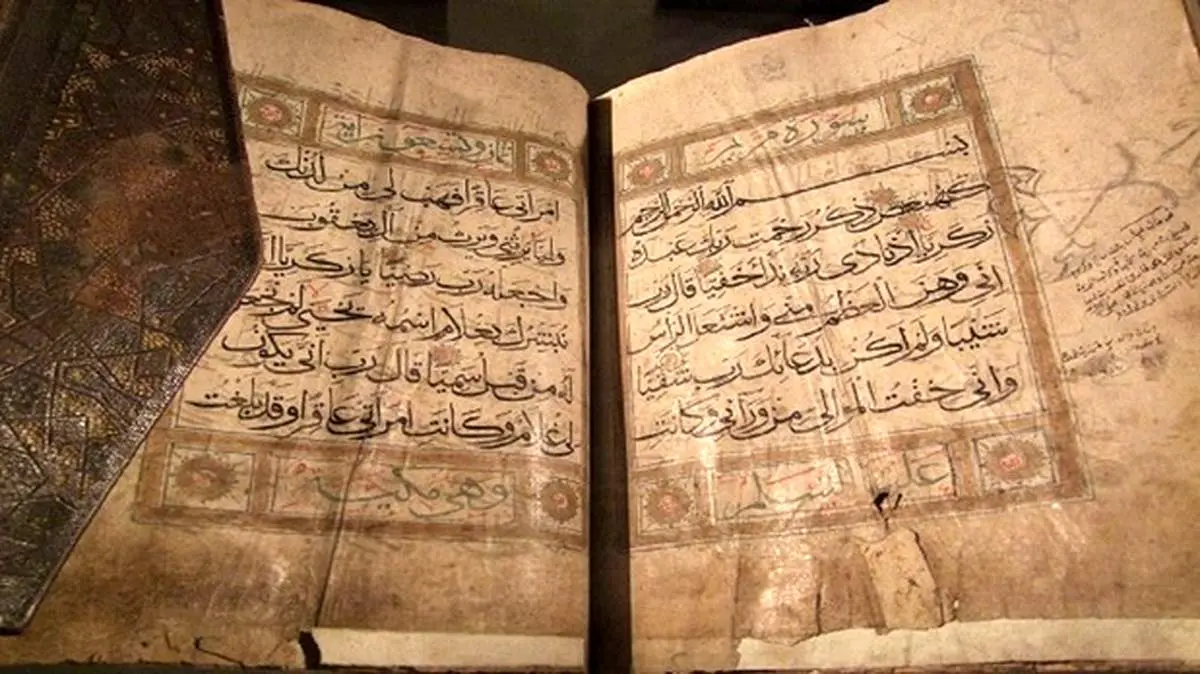 سورة مريم
بسم الله الرحمن الرحيم
كهيعص ذكر رحمت ربك عبده
زكريا اذ نادى ربه نداء خفيا قال رب
انى وهن العظم منى واشتعل الراس
شيبا ولم اكن بدعائك رب شقيا
وانى خفت الموالى من ورائى وكانت
عليها السلم
امراتى عاقرا فهب لى من لدنك
وليا يرثنى ويرث من ال يعقوب
واجعله رب رضيا يا زكريا انا
نبشرك بغلام اسمه يحيى لم نجعل
له من قبل سميا قال رب انى يكون
لى غلام وكانت امراتى عاقرا وقد بلغت
وهى مكية